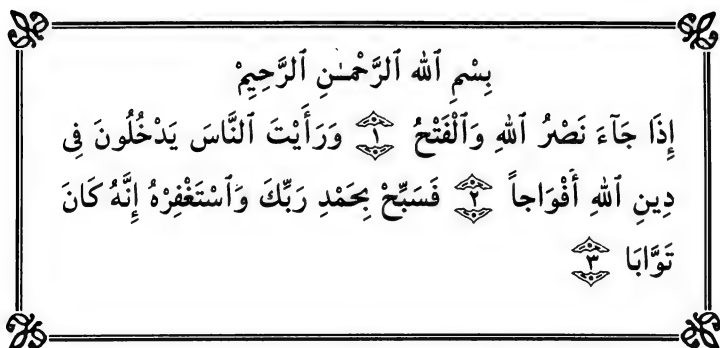 بِسْمِ ٱللهِ ٱلرَّحْمَـٰنِ ٱلرَّحِيمِْ
إِذَا جَآءَ نَصْرُ ٱللهِ وَٱلْفَتْحُ ١ وَرَأَيْتَ ٱلنَّاسَ يَدْخُلُونَ فِى
دِينِ ٱللهِ أَفْوَاجاً ٢ فَسَبِّحْ بِحَمْدِ رَبِّكَ وَٱسْتَغْفِرْهُ إِنَّهُ كَانَ
تَوَّابَا ٣